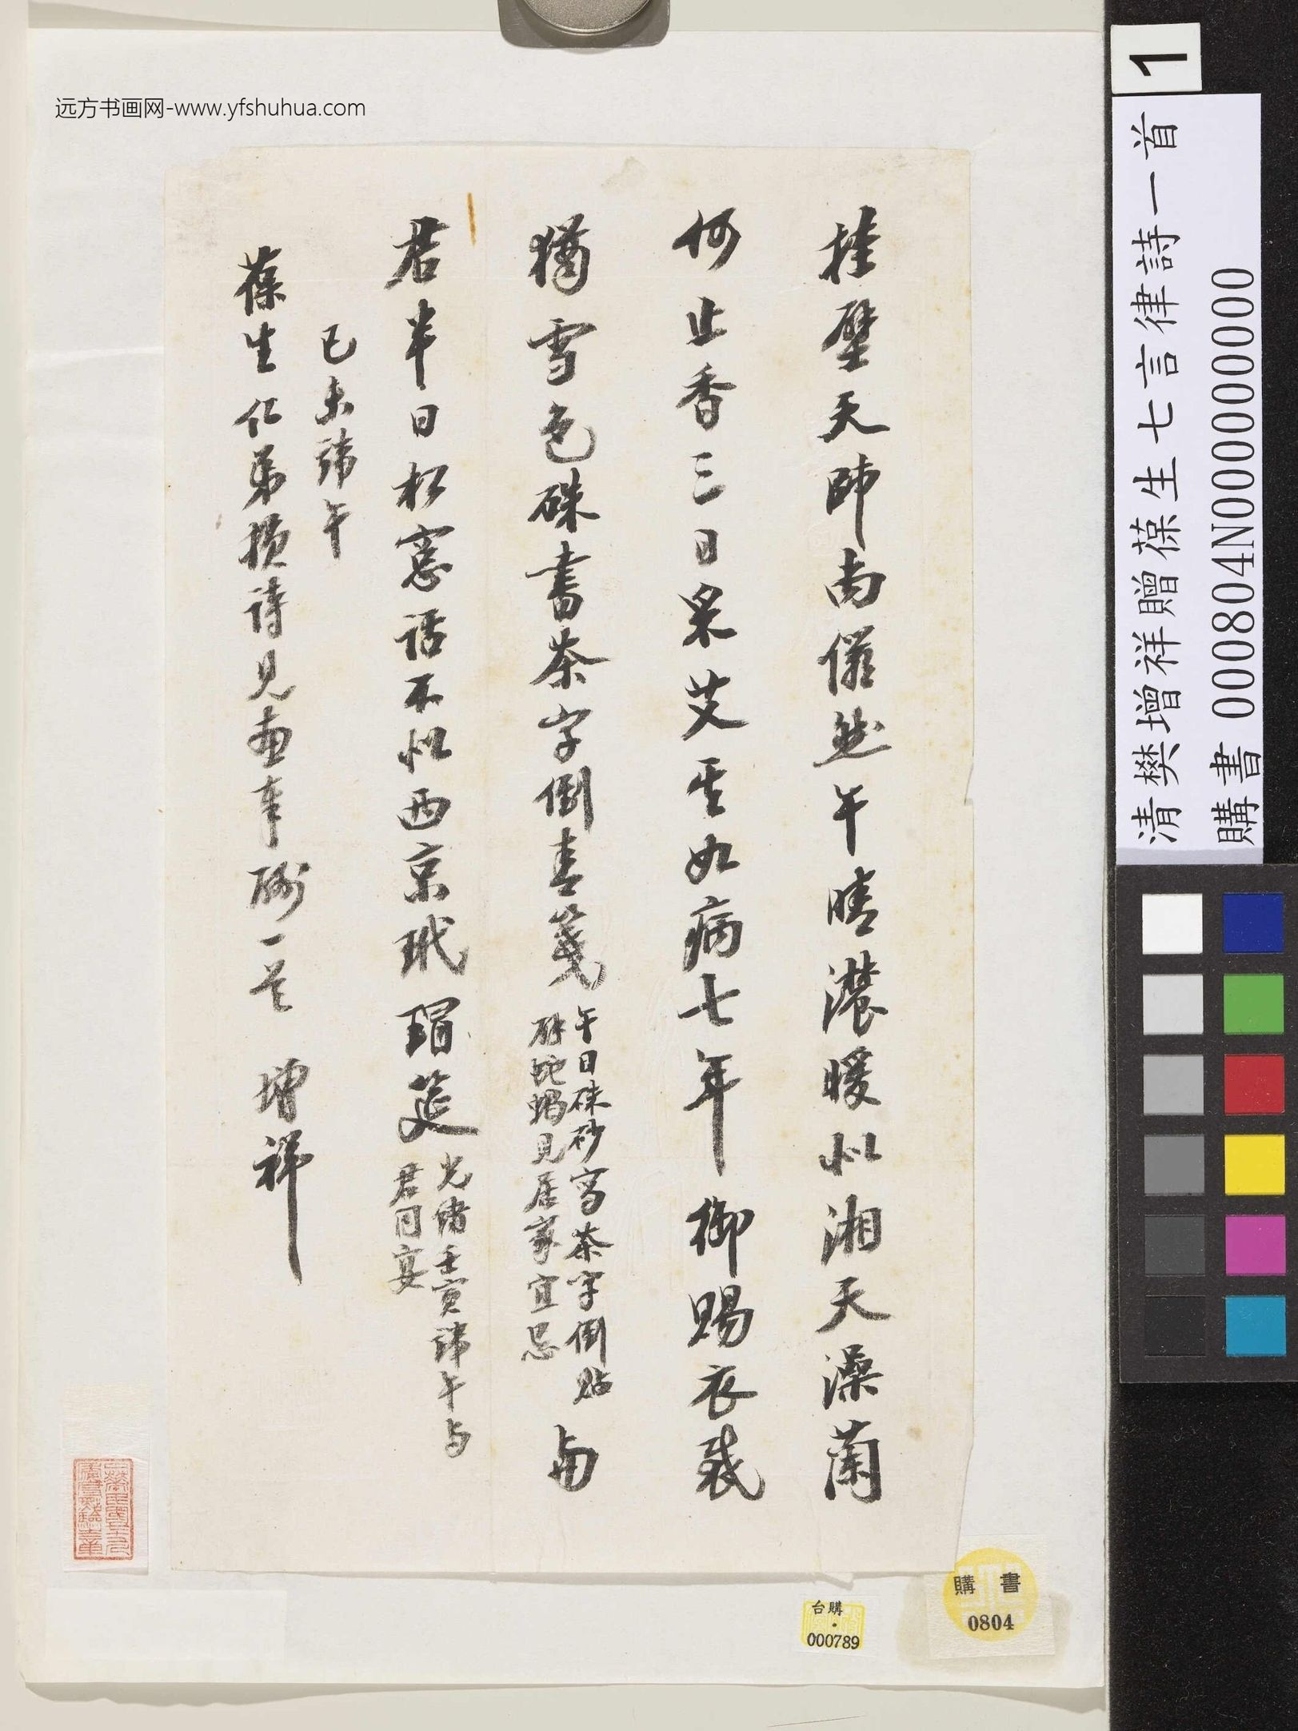 远方书画网-www.yfshuhua.com
挂壁天師尚儼然午晴濃暖似湘天澡蘭
何止香三日采艾真如病七年御賜衣裁
猶雪色硃書茶字倒青箋
午日硃砂寫茶字倒貼
辟蛇蝎見居家宜忌
与
君半日松窗話不似西京玳瑁筵
光緒壬寅諱午与
君同宴
己未諱午
葆生仁弟損詩見壽率酬一首 增祥
1
清樊增祥贈葆生七言律詩一首
購書 000804N000000000
購書
0804
台購
000789